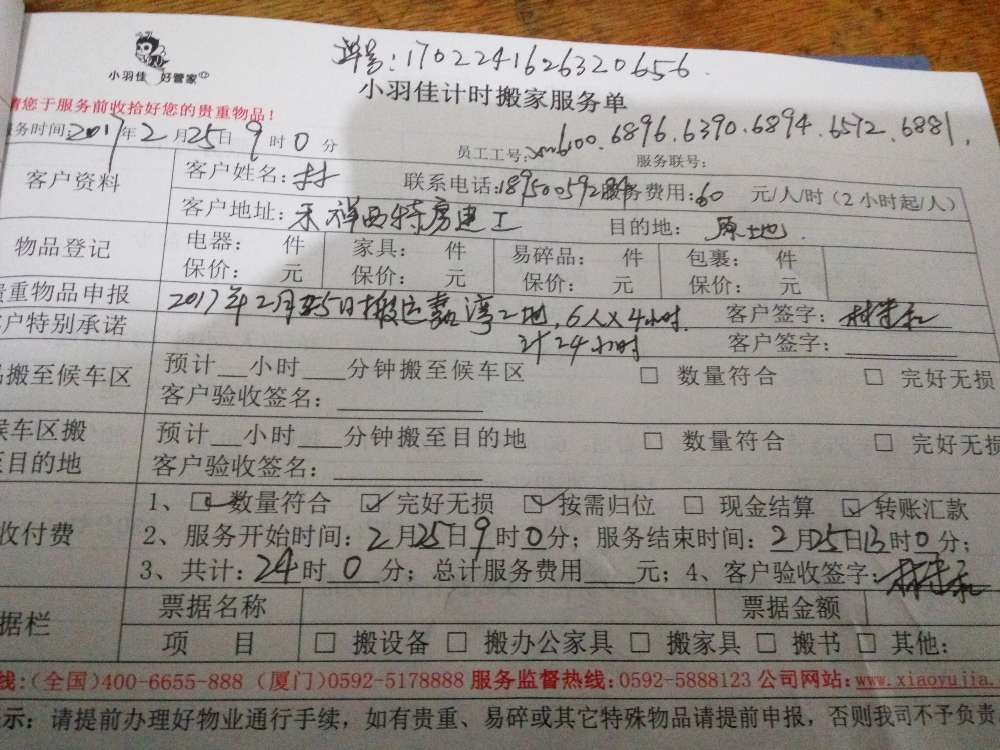 单号:1702241626320656.
小羽佳 好管家
小羽佳计时搬家服务单
请您于服务前收拾好您的贵重物品!
务时间:2017年2月25日9时0分
员工工号:xm6100.6896.6390.6894.6592.6881.
服务联号:
客户资料
客户姓名:林 联系电话:服务费用:60元/人/时(2小时起/人)
客户地址:禾祥西特房建工 目的地:原地.
物品登记
电器: 件 家具: 件 易碎品: 件 包裹: 件
保价: 元 保价: 元 保价: 元 保价: 元
贵重物品申报 2017年2月25日搬运嘉湾工地,6人×4小时. 客户签字:
客户特别承诺 计24小时 客户签字:
品搬至候车区
预计__小时___分钟搬至候车区 □ 数量符合 □ 完好无损
客户验收签名:
候车区搬
至目的地
预计__小时___分钟搬至目的地 □ 数量符合 □ 完好无损
客户验收签名:
收付费
1、☑数量符合 ☑完好无损 ☑按需归位 □ 现金结算 ☑转账汇款
2、服务开始时间:2月25日9时0分;服务结束时间:2月25日13时0分;
3、共计:24时0分;总计服务费用____元;4、客户验收签字:
据栏
票据名称 票据金额
项 目 □ 搬设备 □ 搬办公家具 □ 搬家具 □ 搬书 □ 其他:
线:(全国)400-6655-888 (厦门)0592-5178888 服务监督热线:0592-5888123 公司网站:www.xiaoyujia.
示:请提前办理好物业通行手续,如有贵重、易碎或其它特殊物品请提前申报,否则我司不予负责